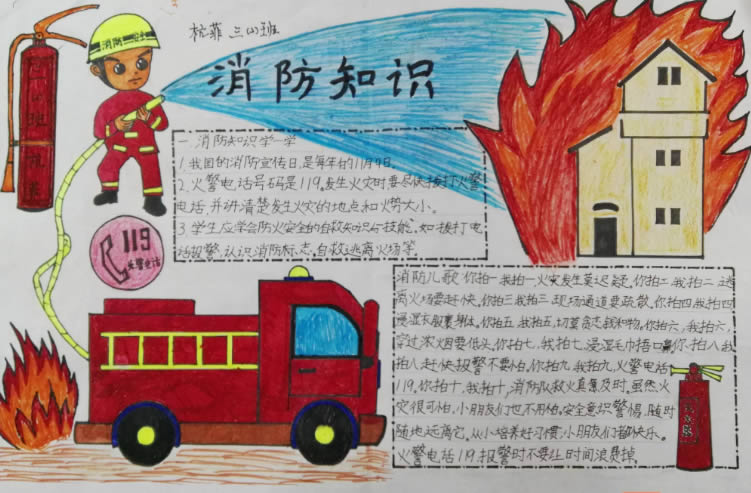 杭菲 三(4)班
消防
消防知识
一 消防知识学一学
1.我国的消防宣传日,是每年的11月9日。
2.火警电话号码是119,发生火灾时要尽快拨打火警
电话,并讲清楚发生火灾的地点和火势大小。
3.学生应学会防火安全的自救知识和技能。如拨打电
话报警,认识消防标志,自救逃离火场等。
119
火警电话
消防儿歌 你拍一我拍一火灾发生莫迟疑。你拍二我拍二 逃
离火场要赶快。你拍三我拍三 现场通道要疏散。你拍四我拍四
浸湿衣服裹身体。你拍五,我拍五,切莫贪恋钱和物。你拍六,我拍六,
穿过浓烟要低头。你拍七,我拍七,浸湿毛巾捂口鼻。你拍八我
拍八赶快报警不要怕。你拍九我拍九,火警电话
119。你拍十,我拍十,消防队救火真及时。虽然火
灾很可怕,小朋友们也不用怕。安全意识警惕,随时
随地远离它。从小培养好习惯,小朋友们都快乐。
火警电话119,报警时不要让时间浪费掉。